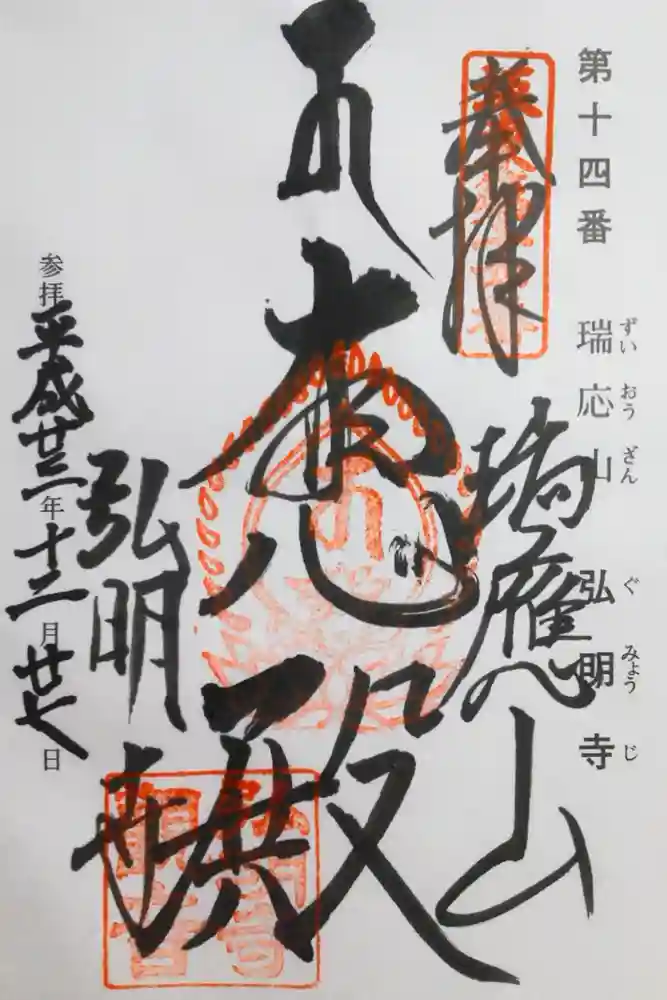 第十四番 瑞応山 弘明寺
ずいおうざん ぐみょうじ
奉拝
瑞應山
大悲殿
弘明寺
参拝 平成廿三年十二月廿七日